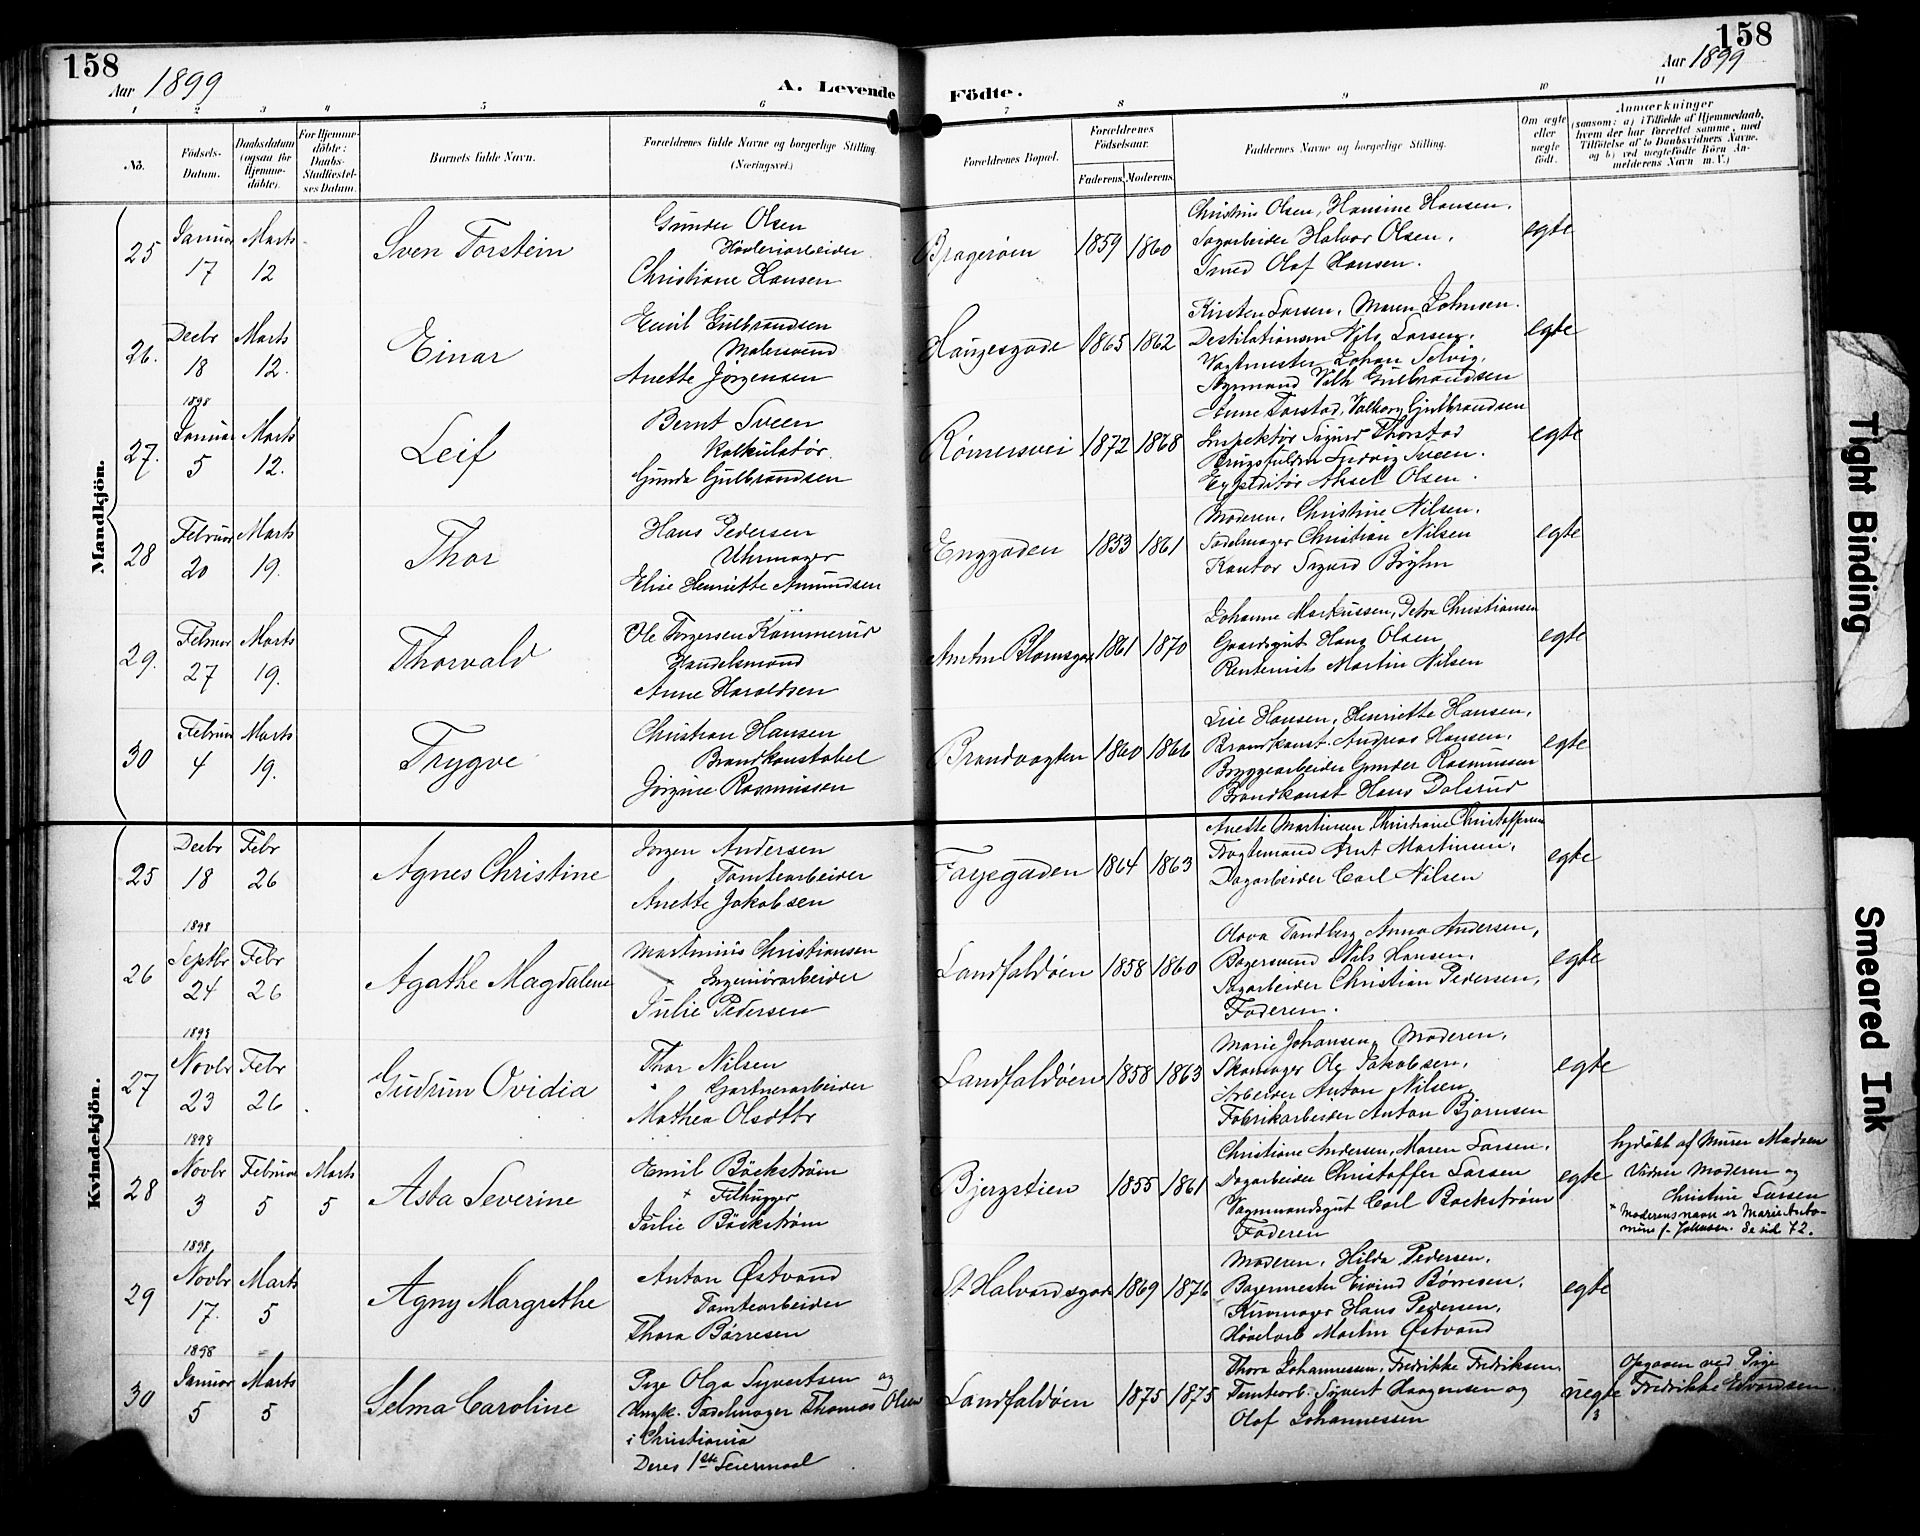 158
Aar 1899
A. Levende
Födte.
158
Aar 1899
1 2 3 4 5 6 7 8 9 10 11
No.
Födsels-Datum.
Daabsdatum (ogsaa for Hjemmedöbte).
For Hjemmedöbte: Daabs-Stadfæstelses Datum.
Barnets fulde Navn.
Forældrenes fulde Navne og borgerlige Stilling. (Næringsvei.)
Forældrenes Bopæl.
Forældrenes Fødselsaar.
Faderens. Moderens.
Faddernes Navne og borgerlige Stilling.
Om ægte eller uægte født.
Anmærkninger
(saasom: a) i Tilfælde af Hjemmedaab, hvem der har forrettet samme, med Tilföielse af to Daabsvidners Navne. og b) ved uægtefödte Börn Anmelderens Navn m. V.)
Mandkjön.
25
Januar 17
Marts 12
Sven Torstein
Gunder Olsen
Høvleriarbeider
Christiane Hansen
Bragerøen
1859 1860
Christine Olsen, Hansine Hansen.
Sagarbeider Halvor Olsen.
Smed Olaf Hansen.
egte
26.
Decbr 18 1898
Marts 12.
Einar
Emil Gulbrandsen
Malersvend
Anette Jørgensen
Haugesgade
1865 1862
Kirsten Larsen, Maren Johnsen.
Destilationsm Nils Larsen.
Vagtmester Johan Selvig.
Gulbrandsen
egte
27.
Januar 5
Marts 12.
Leif
Bernt Sveen
Kalkulatør.
Gunda Gulbrandsen
Rømersvei
1872 1868
Anne Torstad, Valborg Gulbrandsen
Inspektør Sigurd Thorstad
Ludvig Sveen.
Expeditør Aksel Olsen.
egte
28
Februar 20
Marts 19.
Thor
Hans Pedersen
Uhrmager
Elise Henriette Amundsen
Enggaden
1853 1861
Moderen, Christine Nilsen.
Sadelmager Christian Nilsen
Kantor Sigurd Bryhn
egte
29.
Februar 27
Marts 19.
Thorvald
Ole Torgersen Kammerud
Handelsmand
Anne Haraldsen
Amtm Blomsgade
1861 1870
Johanne Markussen, Petra Christiansen
Gaardsgut Hans Olsen
Rentenist Martin Nilsen
egte
30
Februar 4
Marts 19.
Trygve
Christian Hansen
Brandkonstabel
Jørgine Rasmussen
Brandvagten
1860 1866
Lise Hansen, Henriette Hansen.
Brandkonst. Andreas Hansen.
Bryggearbeider Gunder Rasmussen
Brandkonst Hans Dalsrud
egte
Kvindekjön.
25
Decbr 18 1898
Febr 26
Agnes Christine
Jørgen Andersen
Tomtearbeider
Anette Jakobsen
Færgegaden
1864 1863
Anette Martinsen, Christiane Christoffersen
Fragtemand Arnt Martinsen.
Dagarbeider Carl Nilsen
egte
26
Septbr 24 1898
Febr 26
Agathe Magdalene
Martinius Christiansen
Ingeniørarbeider
Julie Pedersen
Landfaldøen
1858 1860
Olava Tandberg Anna Andersen,
Bagersvend Nils Hansen.
Sagarbeider Christian Pedersen,
Faderen.
egte
27
Novbr 23 1898
Febr 26
Gudrun Ovidia
Thor Nilsen
Gartnerarbeider
Mathea Olsdttr
Landfaldøen
1858 1863
Marie Johansen, Moderen,
Skomager Ole Jakobsen.
Arbeider Anton Nilsen
Fabrikarbeider Anton Bjørnsen
egte
28
Novbr 3 1898
Februar 5
Marts 5
Asta Severine
Emil Böckstrøm
× Filhugger
Julie Böckstrøm
Bjergstien
1855 1861
Christiane Andersen, Maren Larsen.
Dagarbeider Christoffer Larsen
Vognmandsgut Carl Bockstrøm
Faderen
egte
hjdöbt af Murer Madsen
Vidner Moderen og
Christine Larsen
× Moderens navn er Marie Antomine f. Johnsen. Se sid 72.
29
Novbr 17. 1898
Marts 5
Agny Margrethe
Anton Østvand
Tomtearbeider
Thora Børresen
St Halvardsgade
1869 1876
Moderen, Hilda Pedersen.
Bagermester Eivind Børresen.
Hans Pedersen,
Høvelarb Martin Østvand
egte
30
Januar 5
Marts 5
Selma Caroline
Pige Olga Syvertsen og
Ungk. Sadelmager Thomas Olsen
i Christiania
Deres 1ste Leiermaal
Landfaldøen
1875 1875
Thora Johannessen, Fredrikke Fredriksen.
Tomteorb. Syvert Haagensen og
Olaf Johannessen
uegte
3
Opgaven ved Pige
Fredrikke Edvardsen
Tight Binding
Smeared Ink